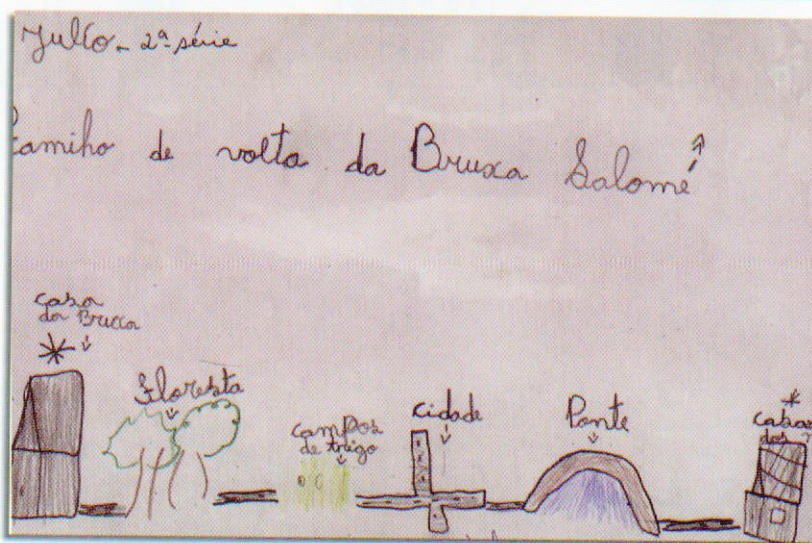 Julio - 2ª série
Camiho de volta da Bruxa Salomé
casa
da Bruxa
Floresta
campos
de trigo
cidade
Ponte
casa
dos